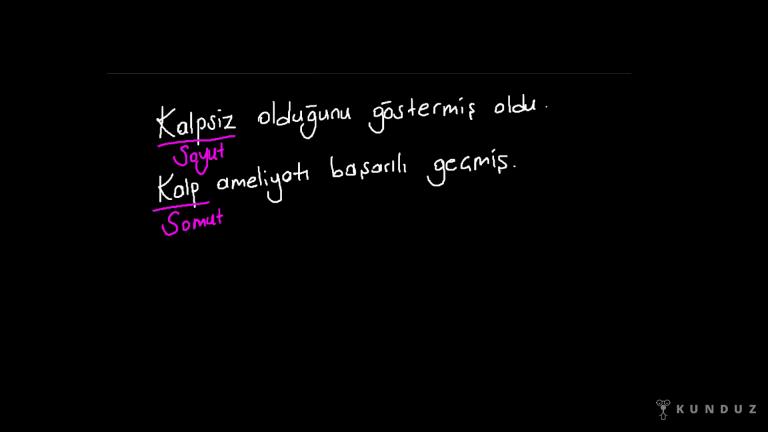 Kalpsiz olduğunu göstermiş oldu.
Soyut
Kalp ameliyatı başarılı geçmiş.
Somut
KUNDUZ